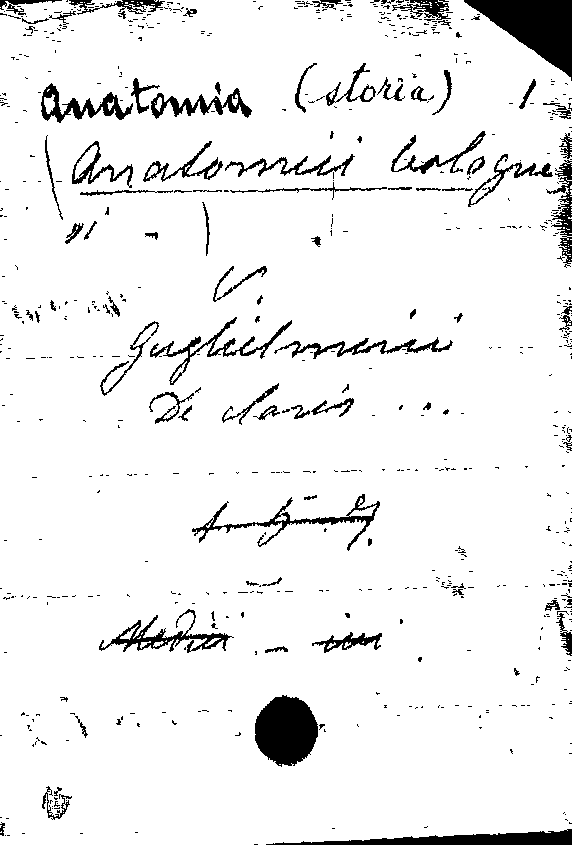 Anatomia (storia) 1
(Anatomici bologne
si - )
V.
Guglielmini
De claris ...
Medici - ivi